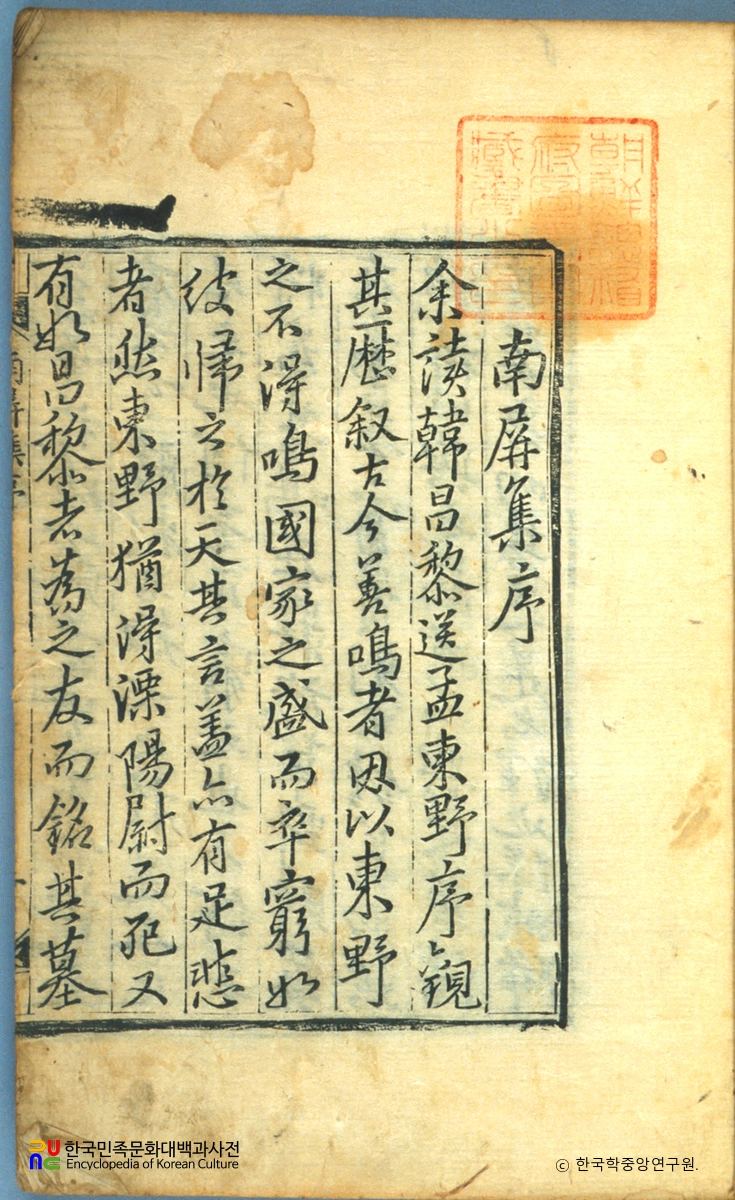 朝鮮總督
府圖書館
藏書之印
南屏集序
余讀韓昌黎送孟東野序觀
其歷叙古今善鳴者因以東野
之不得鳴國家之盛而卒窮如
彼歸之於天其言盖亦有足悲
者然東野猶得溧陽尉而死又
有如昌黎者為之友而銘其墓
南屏集序
한국민족문화대백과사전
Encyclopedia of Korean Culture
© 한국학중앙연구원.